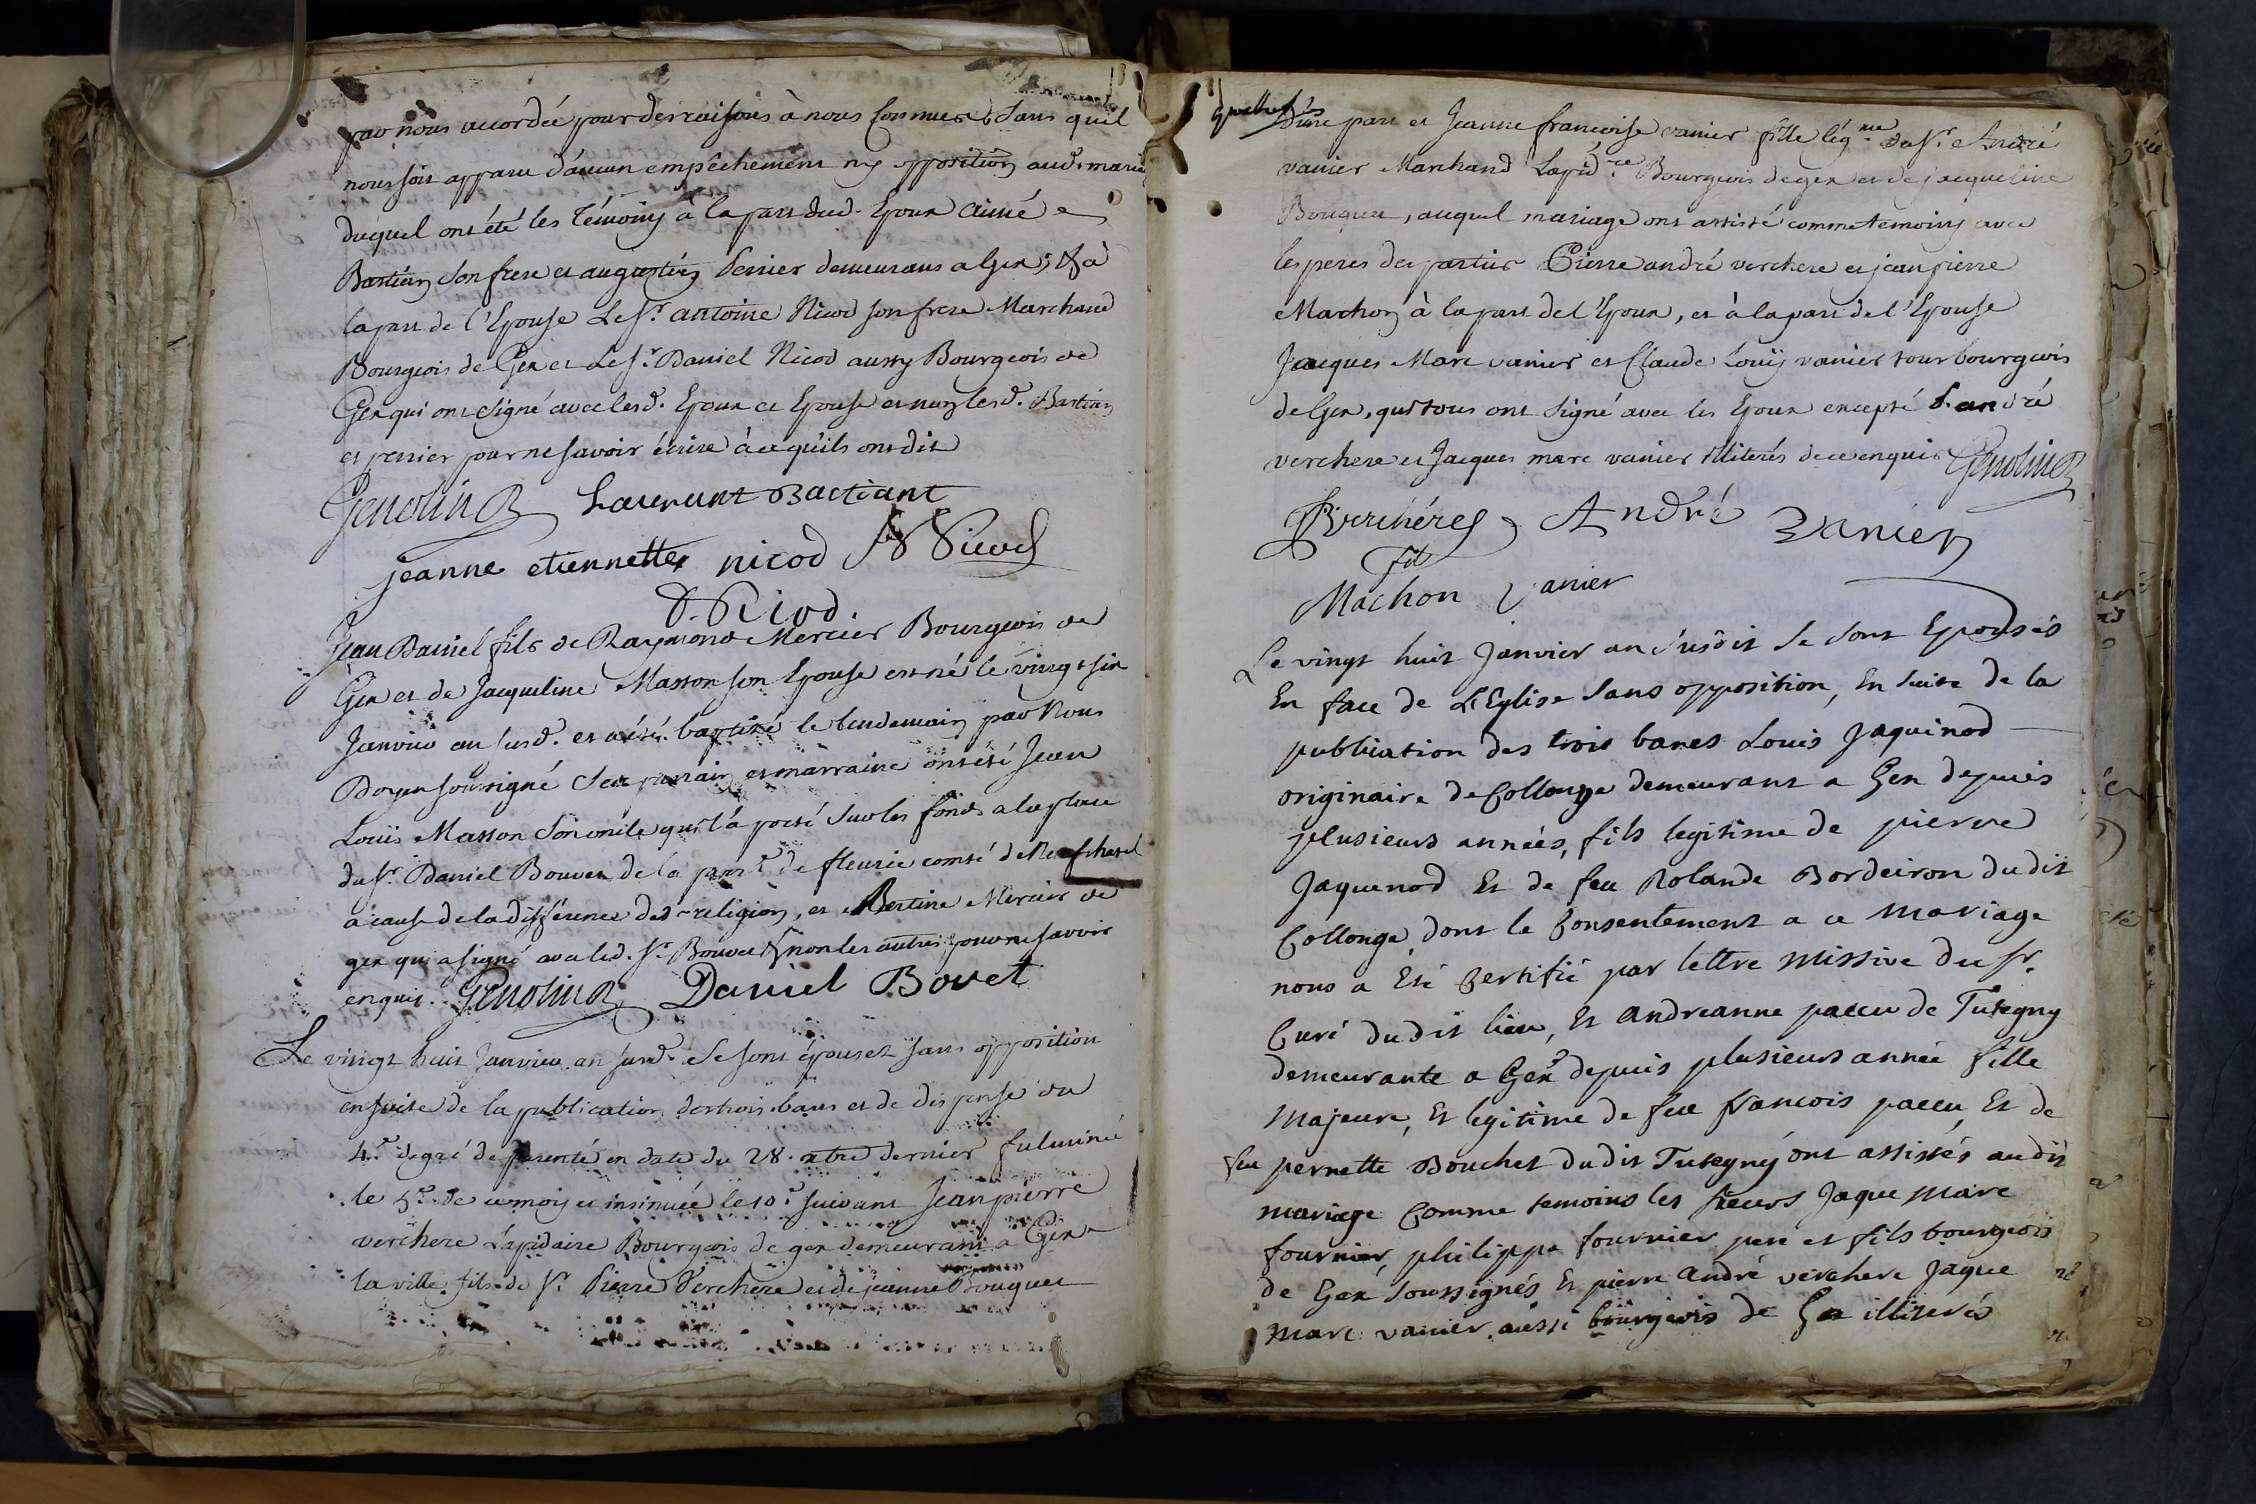 par nous accordée pour des raisons à nous connues, sans quil
nous soit apparu d'aucun empêchement ny opposition aud. maria
duquel ont été les témoins à la part dud. Epoux aimé
Bastian son frere et augustin Perrier demeurans a Gex, & à
la part de l'Epouse Le Sr. antoine Nicod son frere Marchand
Bourgeois de Gex et Le Sr. Daniel Nicod aussy Bourgeois de
Gex qui ont signé avec lesd. Epoux et Epouse et non lesd. Bastian
et perrier pour ne savoir écrire à ce qu'ils ont dit
Genolin Laurent Bactiant
jeanne etiennette nicod Nicod
D. Nicod.
Jean Daniel fils de Raymond Mercier Bourgeois de
Gex et de Jacqueline Masson son Epouse est né le vingt six
Janvier an susd. et a été baptizé le lendemain par Nous
Doyen soussigné Ses parrain et marraine ont été Jean
Louis Masson son oncle qui l'a porté sur les fonds a la place
du Sr. Daniel Bouvet de la parr.e de fleurie comté de Neufchatel
à cause de la différence des religion, et Bertine Mercier de
gex qui a signé avec led. Sr. Bouvet & non les autres pour ne savoir
enquis. Genolin Daniel Bovet
Le vingt huit Janvier an susd. se sont épousez sans opposition
en suite de la publication des trois bans et de dispense du
4.e degré de parenté en date du 28. xbre dernier fulminée
le 5.e de ce mois et insinuée le 10.e suivant Jean pierre
verchere Lapidaire Bourgeois de gex demeurant a Gex
la ville fils de Sr. Pierre Verchere et de jeanne Bouquet
d'une part et Jeanne francoise vanier fille lég.me du Sr. André
vanier Marchand Lapid.re Bourgeois de gex et de jacqueline
Bouquet, auquel mariage ont assisté comme temoins avec
les peres des parties Pierre andré verchere et jean pierre
Machon à la part de l'Epoux, et à la part de l'Epouse
Jacques Marc vanier et Claude Louis vanier tous bourgeois
de Gex, qui tous ont signé avec les Epoux excepté P. andré
verchere et Jacques marc vanier illiterés de ce enquis Genolin
Verchére André vanier
fils
Machon vanier
Le vingt huit Janvier an susdit se sont Epousés
En face de L'Eglise sans opposition, En suite de la
publication des trois bancs Louis Jaquinod
originaire de Collonge demeurant a Gex depuis
plusieurs années, fils legitime de pierre
Jaquenod Et de feu Rolande Bordeiron dudit
Collonge, dont le Consentement a ce mariage
nous a Eté Certifié par lettre missive du sr.
Curé dudit lieu, Et andreanne paccu de Tutegny
demeurante a Gex depuis plusieurs année fille
majeure, Et legitime de feu francois paccu, Et de
feu pernette Bouchet dudit Tutegny ont assistés audit
mariage Comme temoins les sieurs Jaque Marc
fournier, philippe fournier pere et fils bourgeois
de Gex soussignés Et pierre andré verchere Jaque
marc vanier aussi bourgeois de Gex illiterés